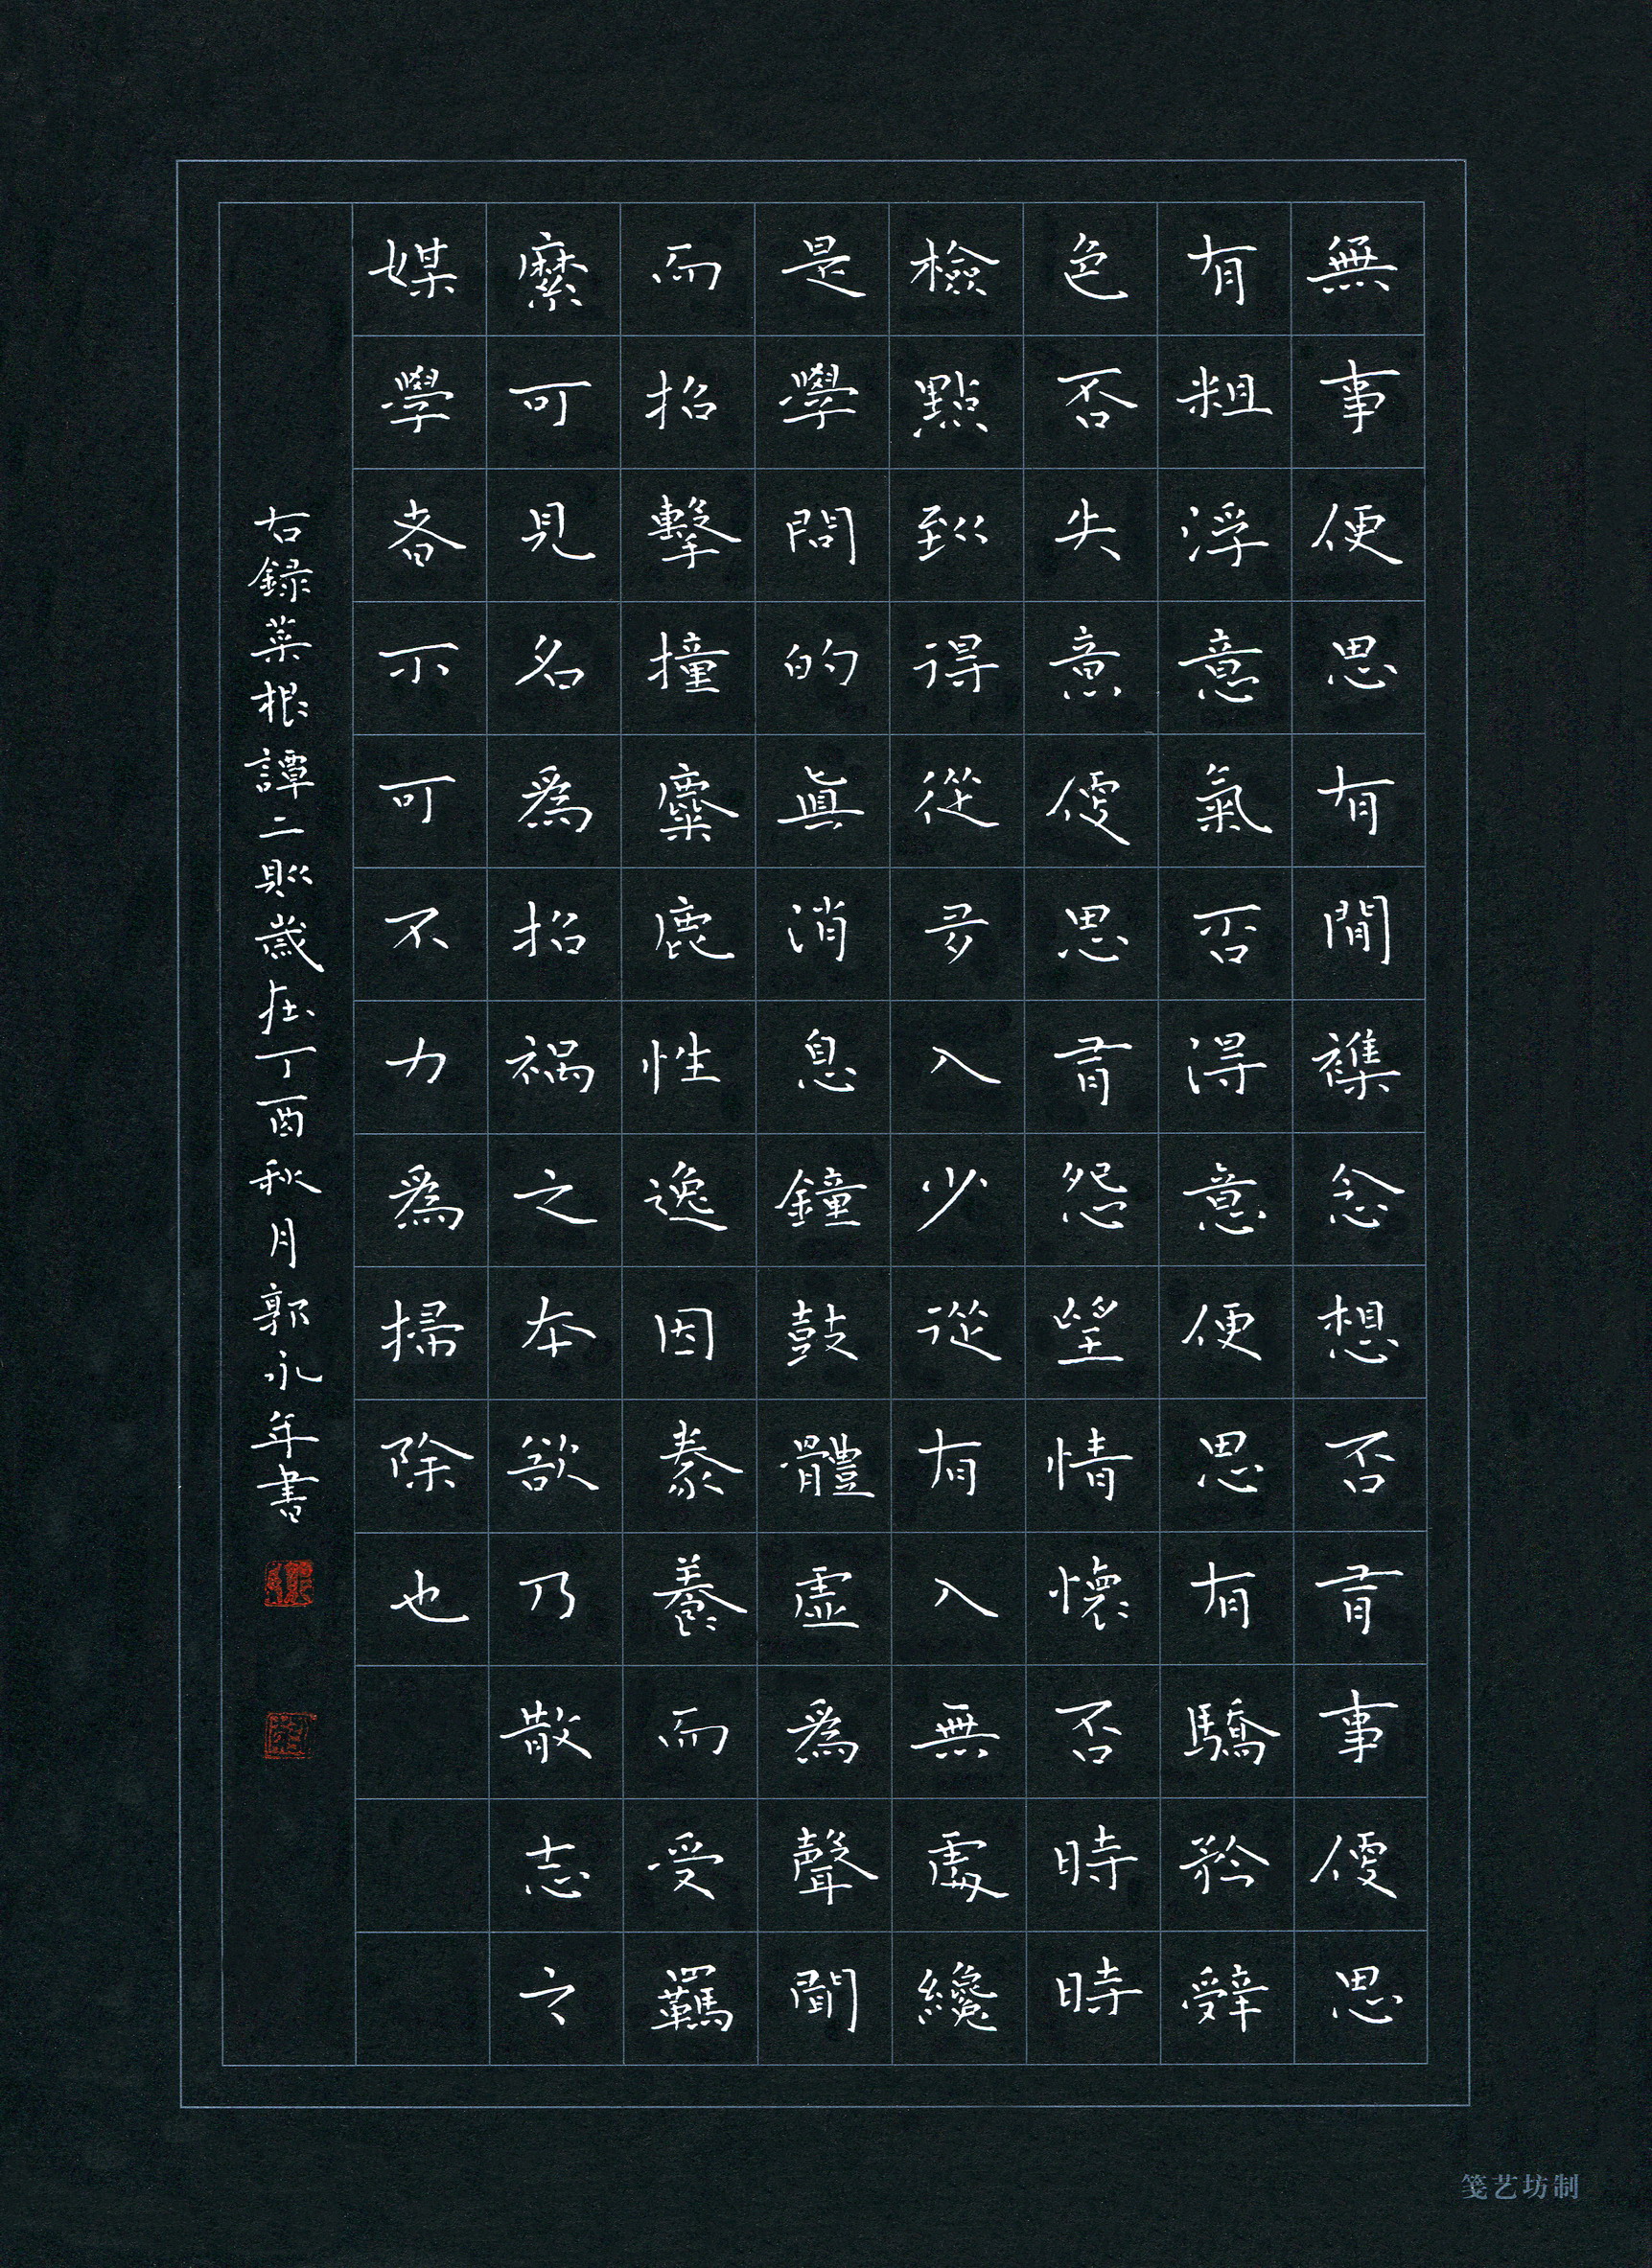 無事便思有閒襍念想否有事便思
有粗浮意氣否得意便思有驕矜辭
色否失意便思有怨望情懷否時時
檢點到得從多入少從有入無處纔
是學問的真消息鐘鼓體虛為聲聞
而招擊撞麋鹿性逸因豢養而受羈
縻可見名為招禍之本欲乃散志之
媒學者不可不力為掃除也
右録菜根譚二則歲在丁酉秋月郭永年書
笺艺坊制